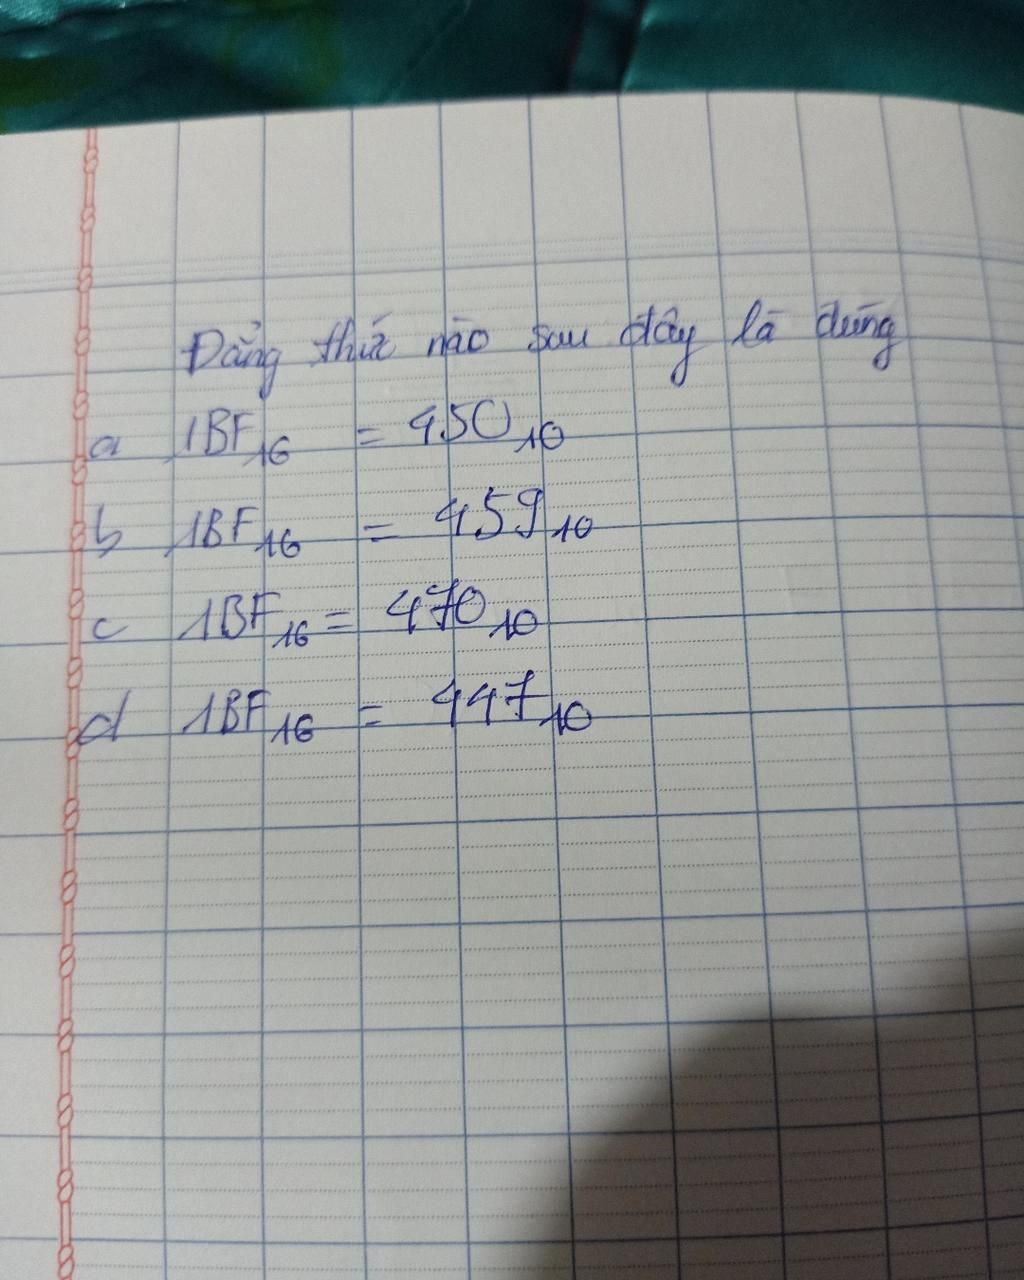 Đẳng thức nào sau đây là đúng
a 1BF₁₆ = 450₁₀
b 1BF₁₆ = 459₁₀
c 1BF₁₆ = 470₁₀
d 1BF₁₆ = 447₁₀